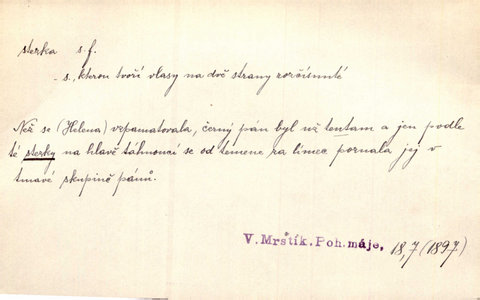 sterka s. f.
- s., kterou tvoří vlasy na dvě strany rozčísnuté
Než se (Helena) vzpamatovala, černý pán byl už tentam a jen podle
té sterky na hlavě táhnoucí se od temene za límec poznala jej v
tmavé skupině pánů.
V. Mrštík. Poh. máje, 18,7 (1897)